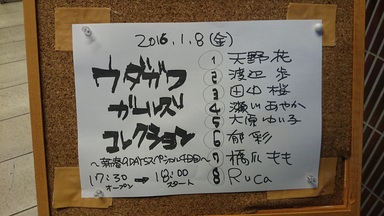 2016.1.8(金)
ウダガワ
ガールズ
コレクション
〜新春9DAYSスペシャル4日目〜
17:30 → 18:00
オープン スタート
1 天野花
2 渡辺歩
3 田中桜
4 瀬川あやか
5 大原ゆい子
6 郁彩
7 橋爪もも
8 Ruca